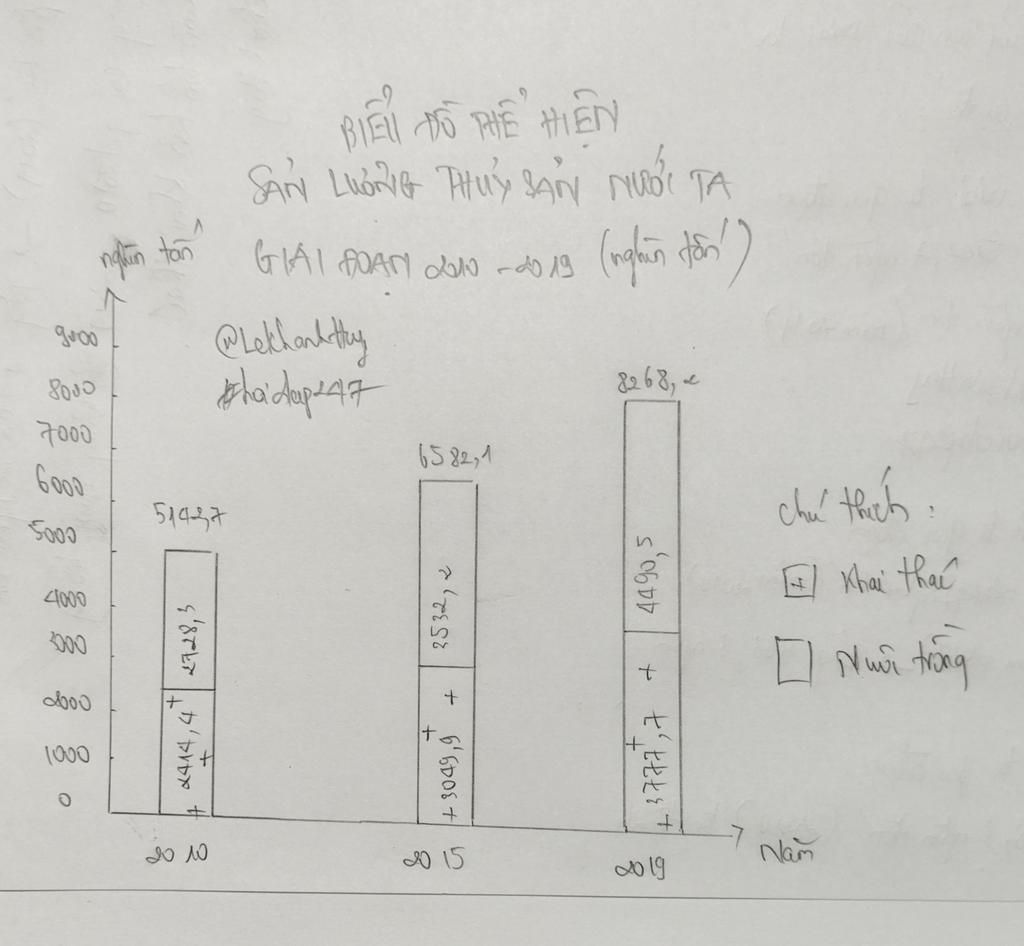 BIỂU ĐỒ THỂ HIỆN
SẢN LƯỢNG THUỶ SẢN NƯỚC TA
GIAI ĐOẠN 2010 - 2019 (nghìn tấn)
nghìn tấn
@LeKhanhHuy
#hoidap247
9000
8000
7000
6000
5000
4000
3000
2000
1000
0
5142,7
2728,3
+ 2414,4 +
+
6582,1
3532,2
+ 3049,9 + +
8268,2
4490,5
+
+ 3777,7 +
2010
2015
2019
Năm
chú thích :
+ Khai thác
Nuôi trồng